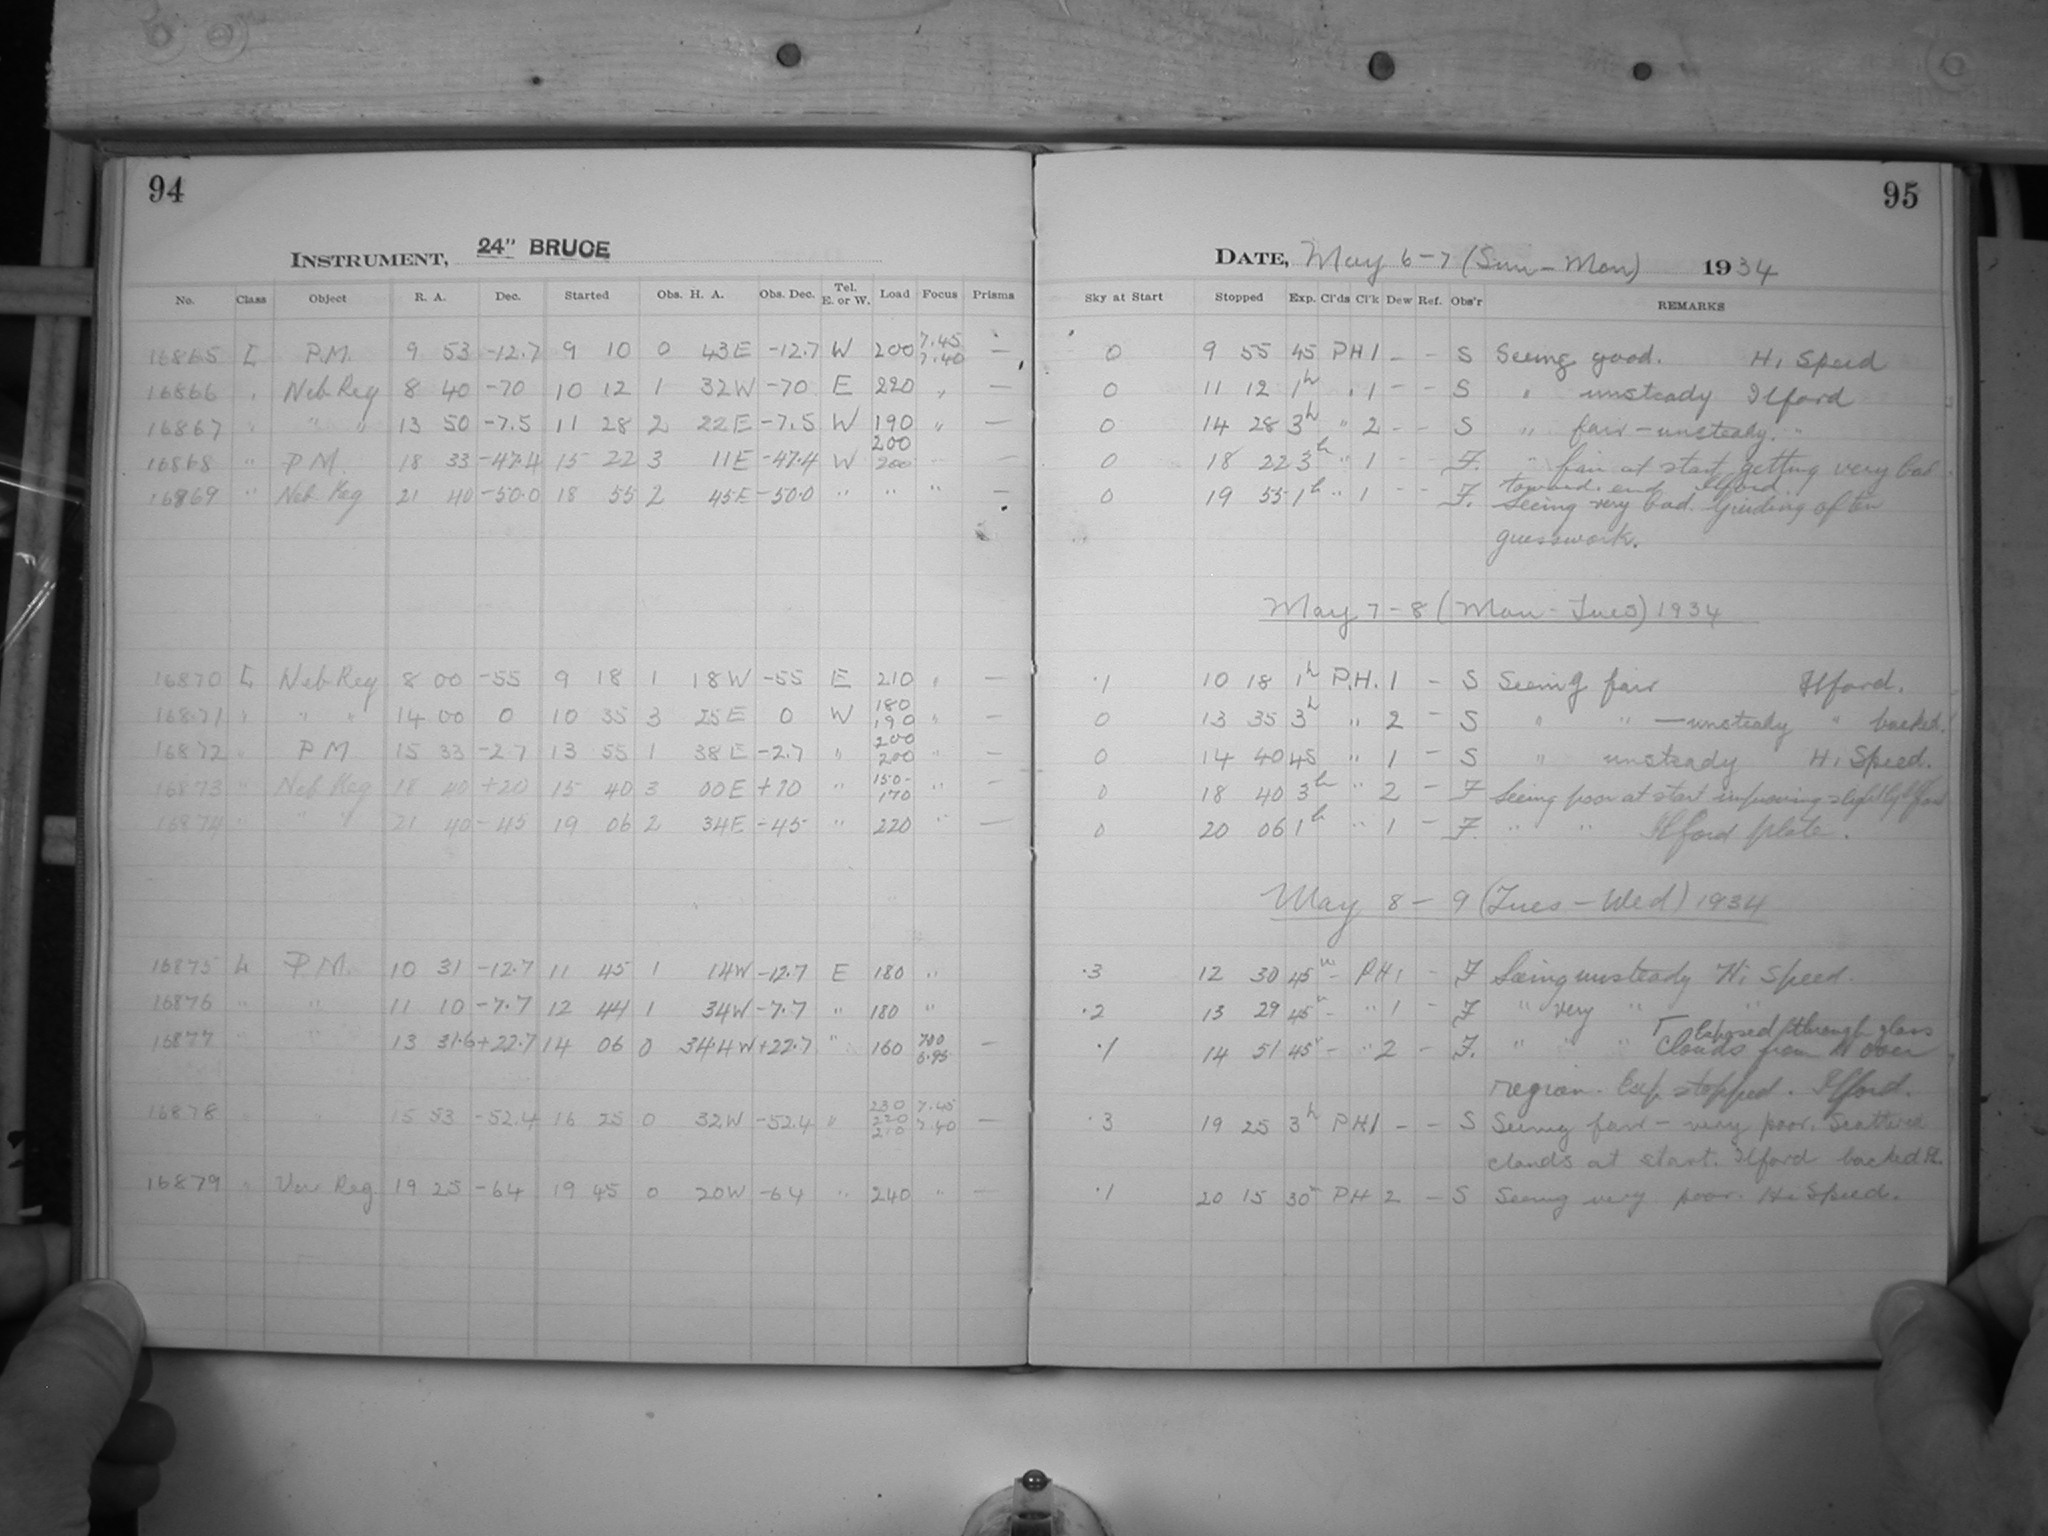 94
INSTRUMENT, 24" BRUCE
No. Class Object R. A. Dec. Started Obs. H. A. Obs. Dec. Tel. E. or W. Load Focus Prisms
16865 L P.M. 9 53 -12.7 9 10 0 43E -12.7 W 200 7.45 7.40 —
16866 " Neb Reg 8 40 -70 10 12 1 32W -70 E 220 " —
16867 " " " 13 50 -7.5 11 28 2 22E -7.5 W 190 200 " —
16868 " P.M. 18 33 -47.4 15 22 3 11E -47.4 W 200 — —
16869 " Neb Reg 21 40 -50.0 18 55 2 45E -50.0 " " " —
16870 L Neb Reg 8 00 -55 9 18 1 18W -55 E 210 " —
16871 " " " 14 00 0 10 35 3 25E 0 W 180 190 " —
16872 " P.M 15 33 -2.7 13 55 1 38E -2.7 " 200 200 " —
16873 " Neb Reg 18 40 +20 15 40 3 00E +20 " 150- 170 " —
16874 " " " 21 40 -45 19 06 2 34E -45 " 220 " —
16875 L P.M. 10 31 -12.7 11 45 1 14W -12.7 E 180 "
16876 " " 11 10 -7.7 12 44 1 34W -7.7 " 180 "
16877 " " 13 31.6 +22.7 14 06 0 34.4W +22.7 " 160 7.00 6.95 —
16878 " " 15 53 -52.4 16 25 0 32W -52.4 " 230 220 210 7.45 7.40 —
16879 " Var Reg 19 25 -64 19 45 0 20W -64 " 240 " —
95
DATE, May 6-7 (Sun-Mon) 1934
Sky at Start Stopped Exp. Cl'ds Cl'k Dew Ref. Obs'r REMARKS
0 9 55 45 PH 1 - - S Seeing good. Hi Speed
0 11 12 1h " 1 - - S " unsteady Ilford
0 14 28 3h " 2 - - S " fair-unsteady. "
0 18 22 3h " 1 - F. " fair at start, getting very bad
toward end Ilford
0 19 55 1h " 1 - - F. Seeing very bad. Guiding often
guesswork.
May 7-8 (Mon-Tues) 1934
.1 10 18 1h P.H. 1 - S Seeing fair Ilford.
0 13 35 3h " 2 - S " " —unsteady " backed.
0 14 40 45 " 1 - S " unsteady Hi Speed.
0 18 40 3h " 2 - F Seeing poor at start improving slightly Ilford
0 20 06 1h " 1 - F. " " Ilford plate.
May 8-9 (Tues-Wed) 1934
.3 12 30 45m - PH 1 - F Seeing unsteady Hi Speed.
.2 13 29 45m - " 1 - F " very " "
Exposed through glass
.1 14 51 45m - " 2 - F. " " " Clouds from N over
region. Exp. stopped. Ilford.
.3 19 25 3h PH 1 - - S Seeing fair - very poor. Scattered
clouds at start. Ilford backed Pl.
.1 20 15 30m PH 2 - S Seeing very poor. Hi Speed.